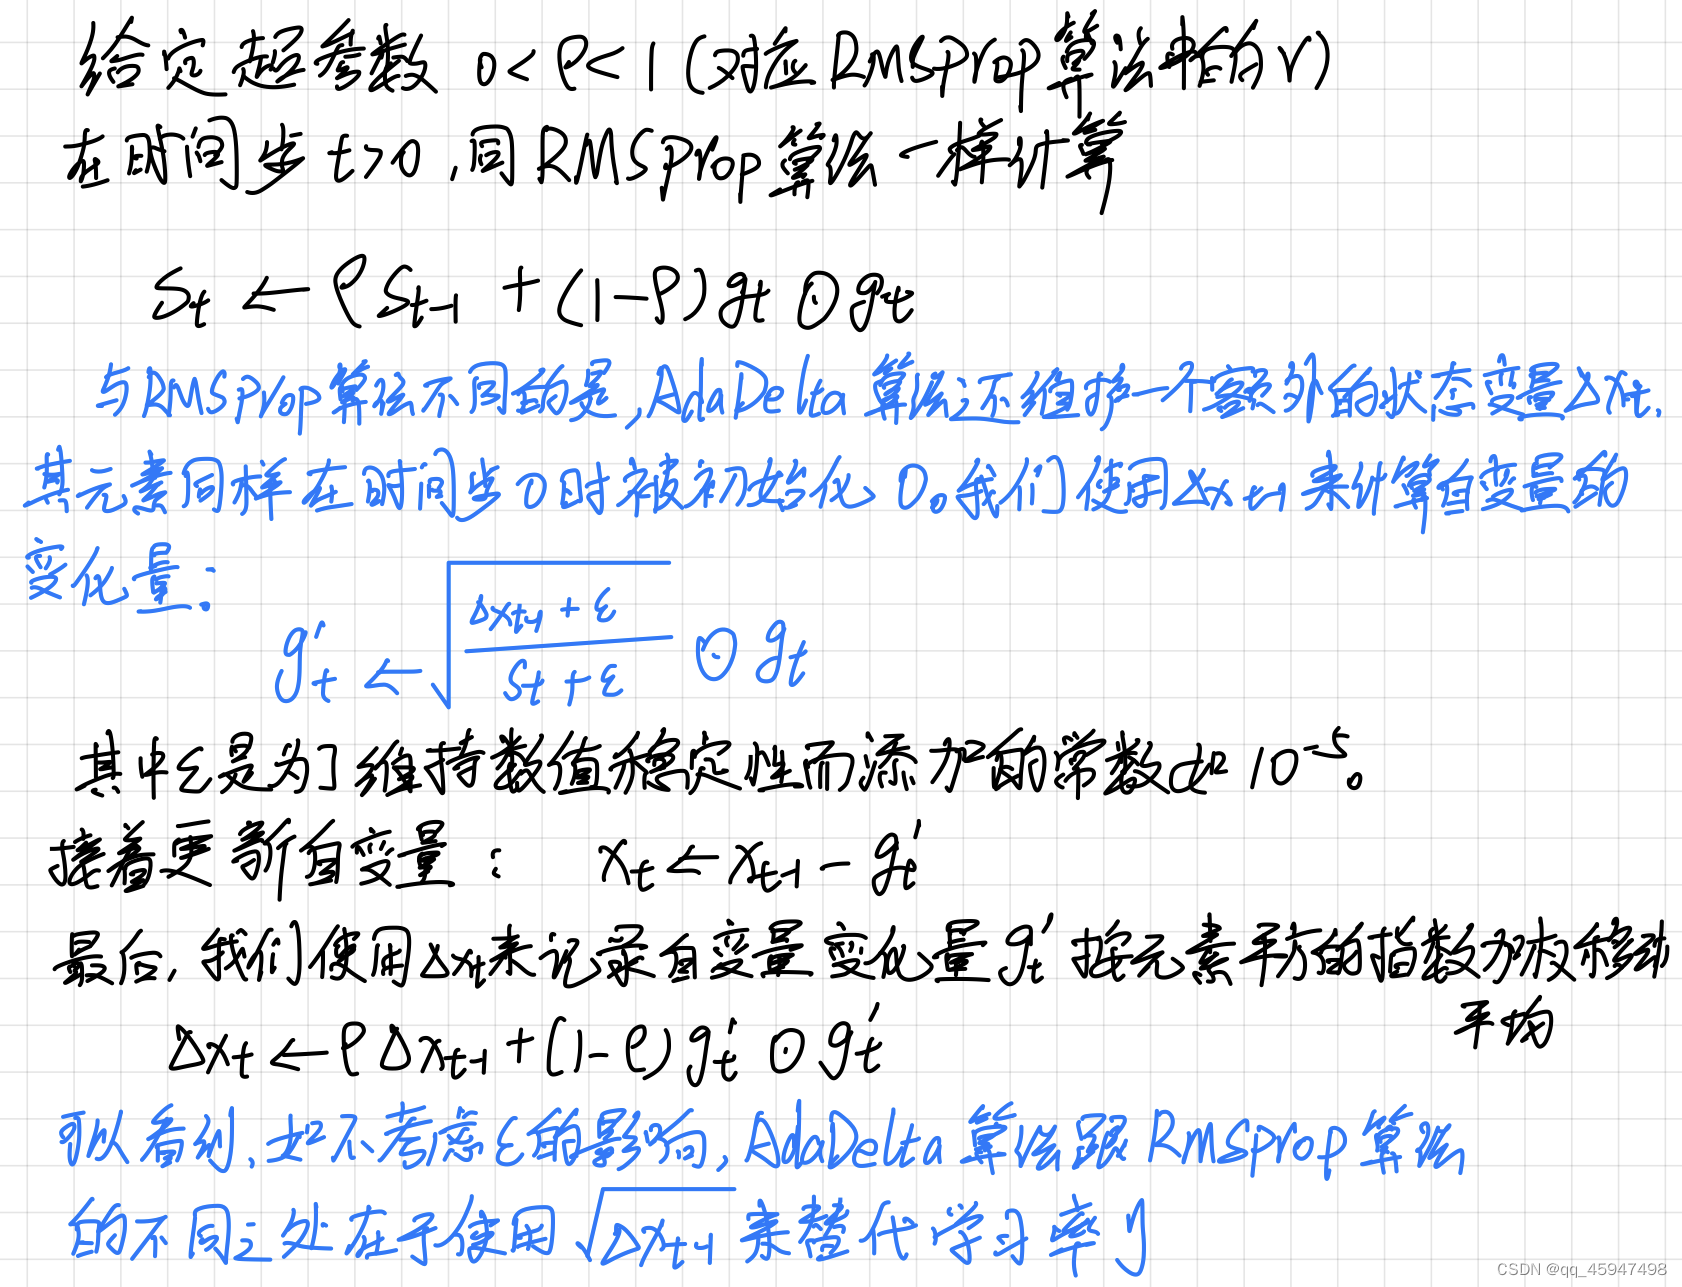 给定超参数 0<ρ<1 (对应RMSProp算法中的γ)
在时间步 t>0 ,同RMSProp算法一样计算
S_t ← ρS_{t-1} + (1-ρ)g_t ⊙ g_t
与RMSProp算法不同的是,AdaDelta算法还维护一个额外的状态变量Δx_t,
其元素同样在时间步0时被初始化0。我们使用Δx_{t-1}来计算自变量的
变化量:
g'_t ← √((Δx_{t-1}+ε)/(S_t+ε)) ⊙ g_t
其中ε是为了维持数值稳定性而添加的常数如10^{-5}。
接着更新自变量: x_t ← x_{t-1} - g'_t
最后,我们使用Δx_t来记录自变量变化量g'_t按元素平方的指数加权移动
平均
Δx_t ← ρΔx_{t-1} + (1-ρ)g'_t ⊙ g'_t
可以看到,如不考虑ε的影响,AdaDelta算法跟RMSProp算法
的不同之处在于使用√Δx_{t-1}来替代学习率η
CSDN @qq_45947498